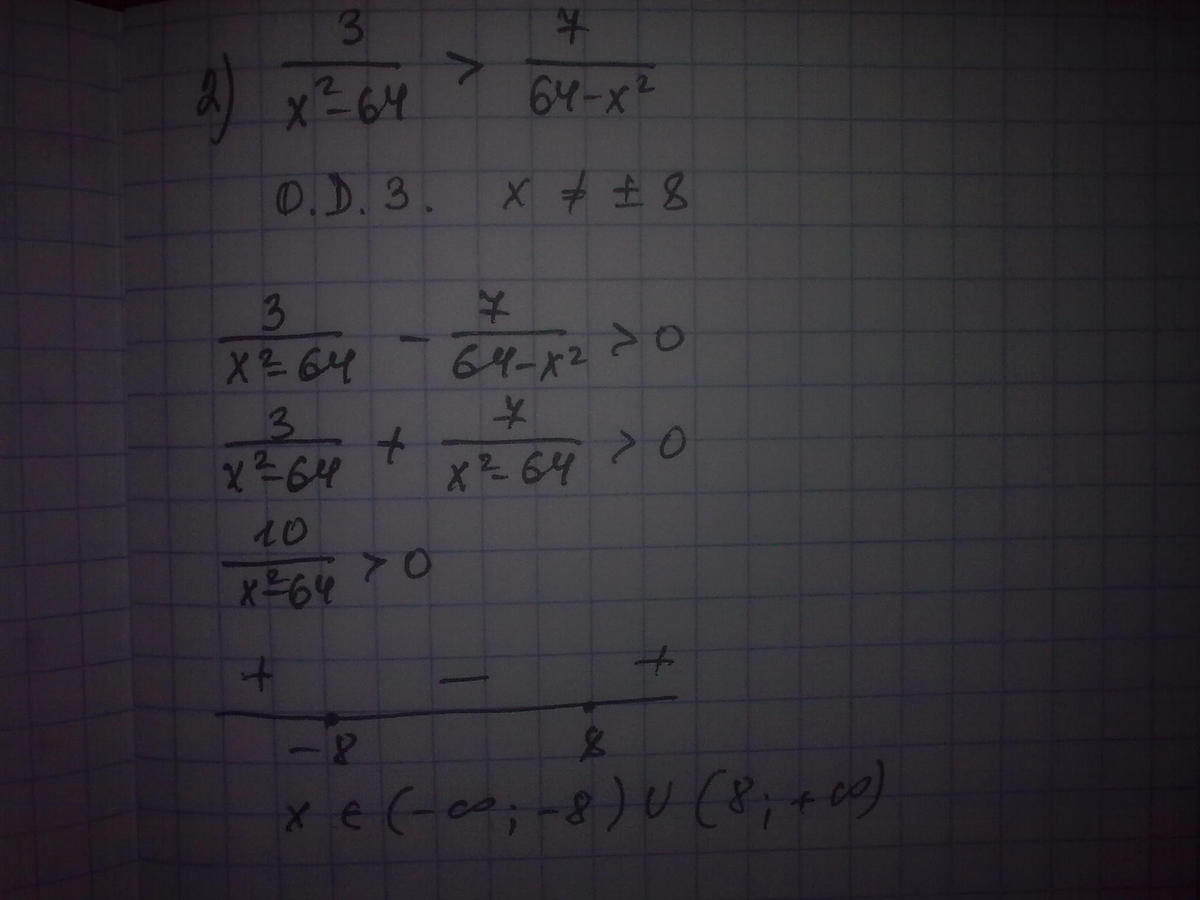 2) 3/(x²-64) > 7/(64-x²)
O.D.3. x ≠ ± 8
3/(x²-64) - 7/(64-x²) > 0
3/(x²-64) + 7/(x²-64) > 0
10/(x²-64) > 0
+ — +
-8 8
x ∈ (-∞; -8) ∪ (8; +∞)